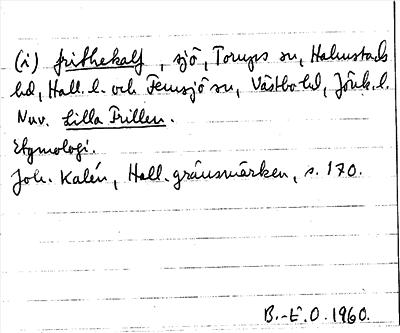 (i) frithekalf, sjö, Torups sn, Halmstads
hd, Hall. l. och Femsjö sn, Västbo hd, Jönk. l.
Nuv. Lilla Frillen.
Etymologi.
Joh. Kalén, Hall. gränsmärken, s. 170.
B.-E.O. 1960.